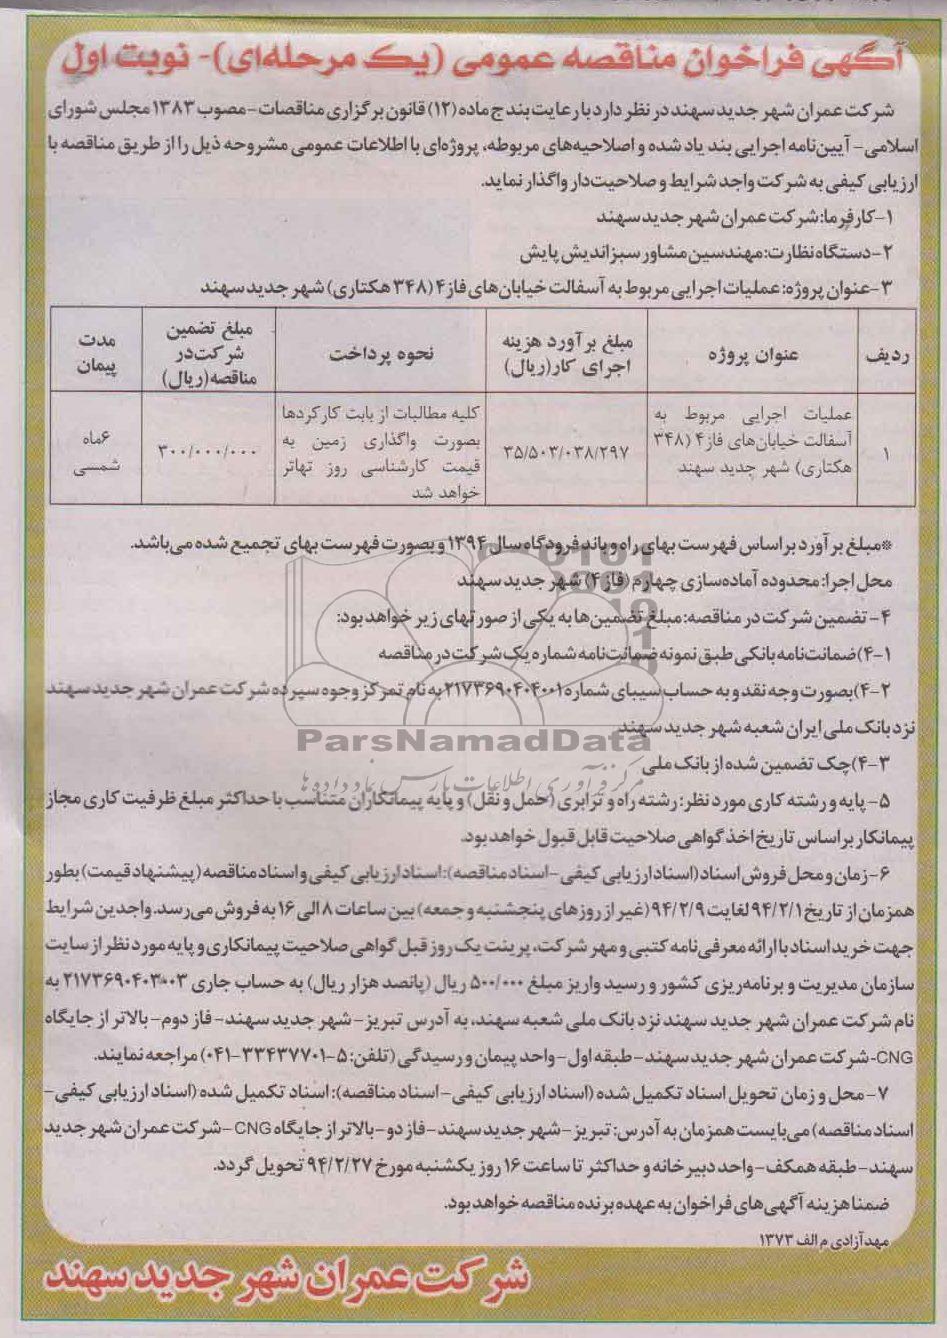 آگهی فراخوان مناقصه عمومی (یک مرحله‌ای)- نوبت اول
شرکت عمران شهر جدید سهند در نظر دارد با رعایت بند ج ماده (۱۲) قانون برگزاری مناقصات - مصوب ۱۳۸۳ مجلس شورای
اسلامی - آیین‌نامه اجرایی بند یاد شده و اصلاحیه‌های مربوطه، پروژه‌ای با اطلاعات عمومی مشروحه ذیل را از طریق مناقصه با
ارزیابی کیفی به شرکت واجد شرایط و صلاحیت‌دار واگذار نماید.
۱-کارفرما: شرکت عمران شهر جدید سهند
۲-دستگاه نظارت: مهندسین مشاور سبز اندیش پایش
۳-عنوان پروژه: عملیات اجرایی مربوط به آسفالت خیابان‌های فاز ۴ (۳۴۸ هکتاری) شهر جدید سهند
ردیف
عنوان پروژه
مبلغ برآورد هزینه
اجرای کار (ریال)
نحوه پرداخت
مبلغ تضمین
شرکت در
مناقصه (ریال)
مدت
پیمان
۱
عملیات اجرایی مربوط به
آسفالت خیابان‌های فاز ۴ (۳۴۸
هکتاری) شهر جدید سهند
۳۵/۵۰۳/۰۳۸/۲۹۷
کلیه مطالبات از بابت کارکردها
بصورت واگذاری زمین به
قیمت کارشناسی روز تهاتر
خواهد شد
۳۰۰/۰۰۰/۰۰۰
۶ماه
شمسی
*مبلغ برآورد براساس فهرست بهای راه و باند فرودگاه سال ۱۳۹۴ و بصورت فهرست بهای تجمیع شده می‌باشد.
محل اجرا: محدوده آماده‌سازی چهارم (فاز ۴) شهر جدید سهند
۴- تضمین شرکت در مناقصه: مبلغ تضمین‌ها به یکی از صورتهای زیر خواهد بود:
۴-۱) ضمانت‌نامه بانکی طبق نمونه ضمانت‌نامه شماره یک شرکت در مناقصه
۴-۲) بصورت وجه نقد و به حساب سیبای شماره ۲۱۷۳۶۹۰۴۰۴۰۰۱ به نام تمرکز وجوه سپرده شرکت عمران شهر جدید سهند
نزد بانک ملی ایران شعبه شهر جدید سهند
۴-۳) چک تضمین شده از بانک ملی
۵- پایه و رشته کاری مورد نظر: رشته راه و ترابری (حمل و نقل) و پایه پیمانکاران متناسب با حداکثر مبلغ ظرفیت کاری مجاز
پیمانکار براساس تاریخ اخذ گواهی صلاحیت قابل قبول خواهد بود.
۶- زمان و محل فروش اسناد (اسناد ارزیابی کیفی - اسناد مناقصه): اسناد ارزیابی کیفی و اسناد مناقصه (پیشنهاد قیمت) بطور
همزمان از تاریخ ۹۴/۲/۱ لغایت ۹۴/۲/۹ (غیر از روزهای پنجشنبه و جمعه) بین ساعات ۸ الی ۱۶ به فروش می‌رسد. واجدین شرایط
جهت خرید اسناد با ارائه معرفی‌نامه کتبی و مهر شرکت، پرینت یک روز قبل گواهی صلاحیت پیمانکاری و پایه مورد نظر از سایت
سازمان مدیریت و برنامه‌ریزی کشور و رسید واریز مبلغ ۵۰۰/۰۰۰ ریال (پانصد هزار ریال) به حساب جاری ۲۱۷۳۶۹۰۴۰۳۰۰۳ به
نام شرکت عمران شهر جدید سهند نزد بانک ملی شعبه سهند، به آدرس تبریز - شهر جدید سهند - فاز دوم - بالاتر از جایگاه
CNG- شرکت عمران شهر جدید سهند - طبقه اول - واحد پیمان و رسیدگی (تلفن: ۵-۳۳۴۳۷۷۰۱-۰۴۱) مراجعه نمایند.
۷- محل و زمان تحویل اسناد تکمیل شده (اسناد ارزیابی کیفی - اسناد مناقصه): اسناد تکمیل شده (اسناد ارزیابی کیفی -
اسناد مناقصه) می‌بایست همزمان به آدرس: تبریز - شهر جدید سهند - فاز دو - بالاتر از جایگاه CNG - شرکت عمران شهر جدید
سهند - طبقه همکف - واحد دبیرخانه و حداکثر تا ساعت ۱۶ روز یکشنبه مورخ ۹۴/۲/۲۷ تحویل گردد.
ضمنا هزینه آگهی‌های فراخوان به عهده برنده مناقصه خواهد بود.
مهد آزادی م الف ۱۳۷۳
شرکت عمران شهر جدید سهند
ParsNamadData
مرکز فرآوری اطلاعات پارس نماد داده ها